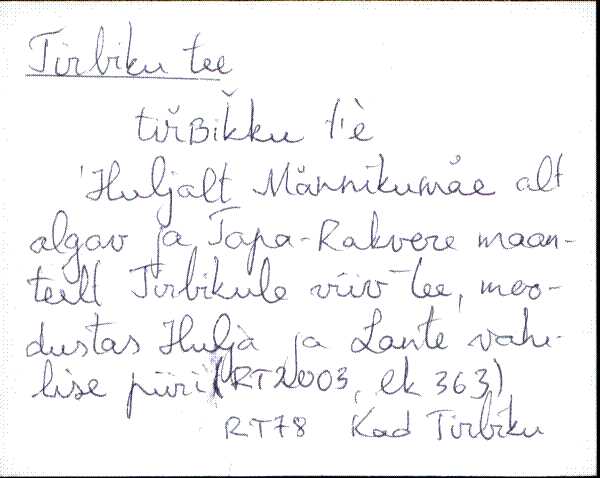 Tirbiku tee
tiřBiǩku t'è
Huljalt Männikumäe alt
algav ja Tapa-Rakvere maan-
teelt Tirbikule viiv tee, moo-
dustas Hulja ja Lante vahe-
lise piiri (RT2003, lk 363)
RT78 Kad Tirbiku